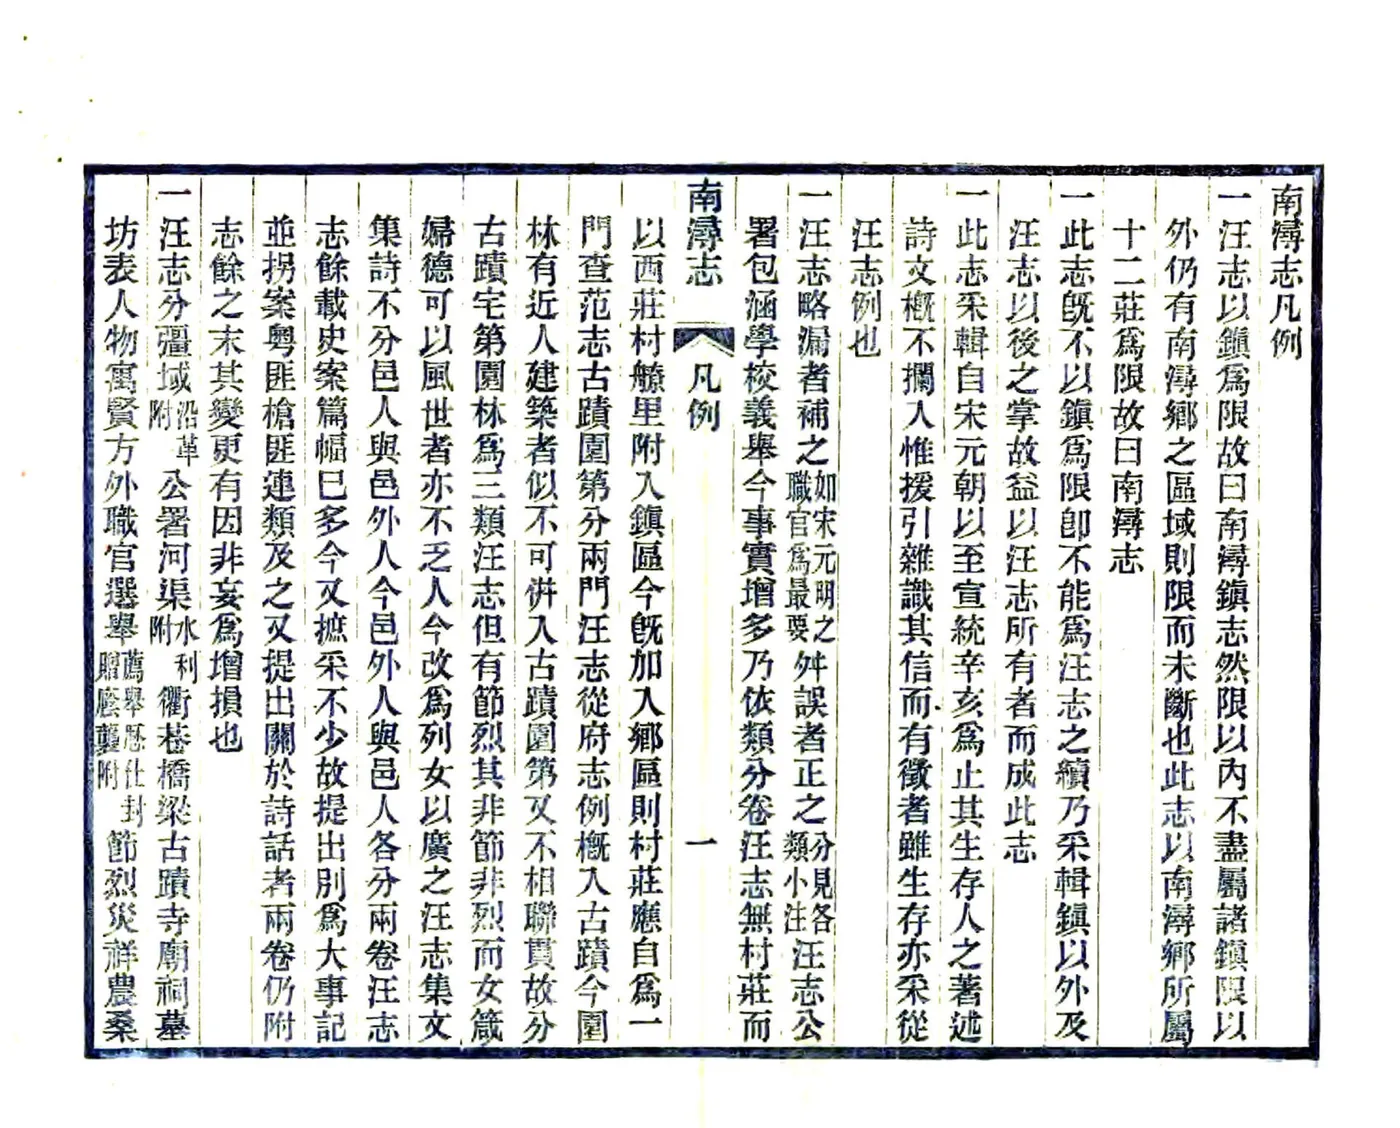 南潯志凡例
一汪志以鎭爲限故曰南潯鎭志然限以內不盡屬諸鎭限以
外仍有南潯鄉之區域則限而未斷也此志以南潯鄉所屬
十二莊爲限故曰南潯志
一此志旣不以鎭爲限卽不能爲汪志之續乃采輯鎭以外及
汪志以後之掌故益以汪志所有者而成此志
一此志采輯自宋元朝以至宣統辛亥爲止其生存人之著述
詩文槪不攔入惟援引雜識其信而有徵者雖生存亦采從
汪志例也
一汪志略漏者補之如宋元明之職官爲最要舛誤者正之分見各類小注汪志公
署包涵學校義舉今事實增多乃依類分卷汪志無村莊而
南潯志 凡例 一
以西莊村𦪇里附入鎭區今旣加入鄉區則村莊應自爲一
門查范志古蹟園第分兩門汪志從府志例槪入古蹟今園
林有近人建築者似不可併入古蹟園第又不相聯貫故分
古蹟宅第園林爲三類汪志但有節烈其非節非烈而女箴
婦德可以風世者亦不乏人今改爲列女以廣之汪志集文
集詩不分邑人與邑外人今邑外人與邑人各分兩卷汪志
志餘載史案篇幅巳多今又摭采不少故提出別爲大事記
並拐案粤匪槍匪連類及之又提出關於詩話者兩卷仍附
志餘之末其變更有因非妄爲增損也
一汪志分彊域沿革附公署河渠水利附衢巷橋梁古蹟寺廟祠墓
坊表人物寓賢方外職官選舉薦舉歷仕封贈廕襲附節烈災祥農桑